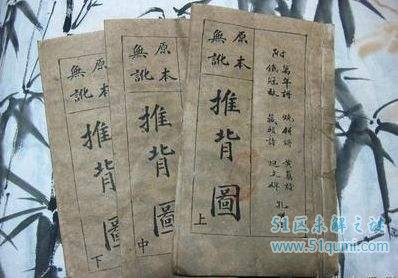 原本
無訛
推背圖
下
原本
無訛
推背圖
中
原本
無訛
推背圖
上
附
萬年詩
燒餅詩
藏頭詩
51区未解之谜
www.51qumi.com